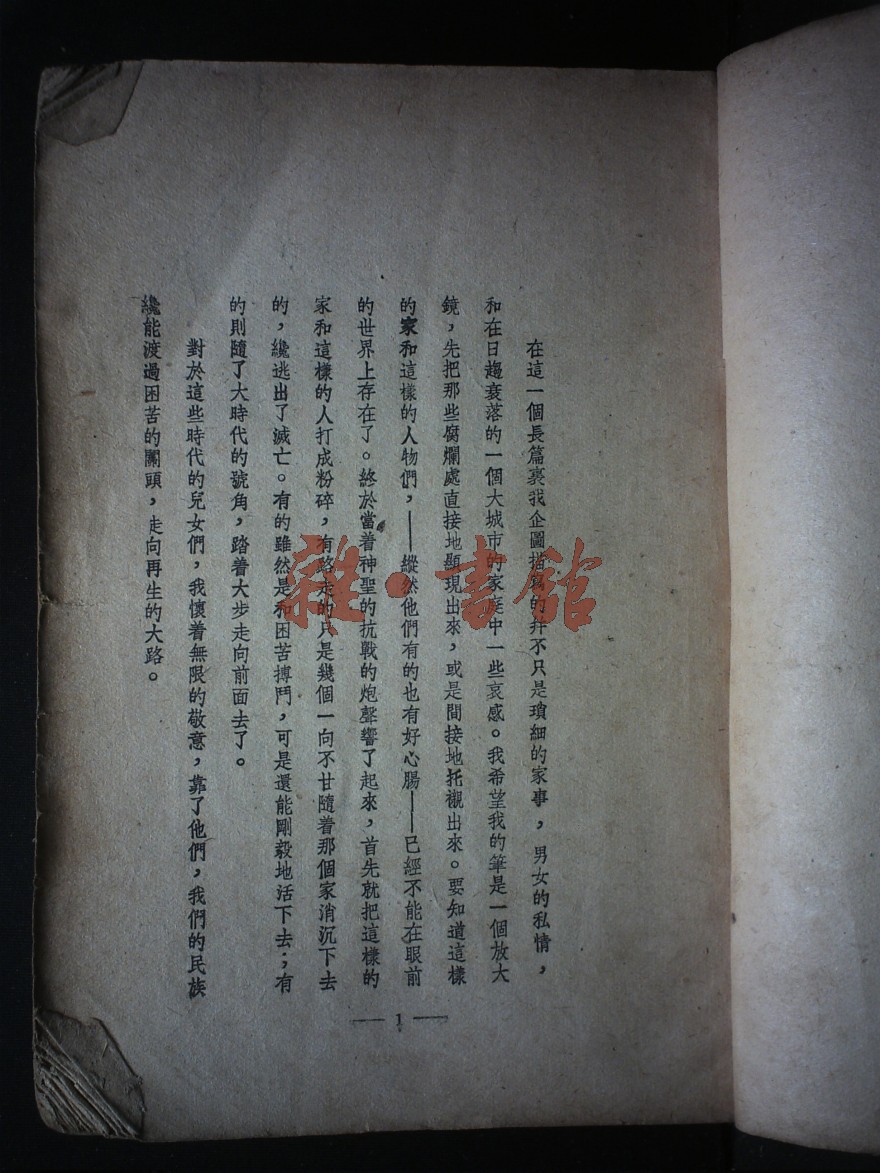 在這一個長篇裏我企圖描寫的并不只是瑣細的家事，男女的私情，
和在日趨衰落的一個大城市的家庭中一些哀感。我希望我的筆是一個放大
鏡，先把那些腐爛處直接地顯現出來，或是間接地托襯出來。要知道這樣
的家和這樣的人物們，——縱然他們有的也有好心腸——已經不能在眼前
的世界上存在了。終於當着神聖的抗戰的炮聲響了起來，首先就把這樣的
家和這樣的人打成粉碎，有路走的只是幾個一向不甘隨着那個家消沉下去
的，纔逃出了滅亡。有的雖然是和困苦搏鬥，可是還能剛毅地活下去；有
的則隨了大時代的號角，踏着大步走向前面去了。
對於這些時代的兒女們，我懷着無限的敬意，靠了他們，我們的民族
纔能渡過困苦的關頭，走向再生的大路。
— 1 —
雜·書館